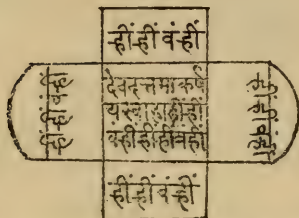 ह्रींह्रीं वंह्रीं
ह्रींह्रीं वंह्रीं
देवदत्तमाकर्ष
यस्वाहाह्रींह्रीं
वंह्रींह्रींह्रींवंह्रीं
ह्रींह्रीं वंह्रीं
ह्रींह्रीं वंह्रीं